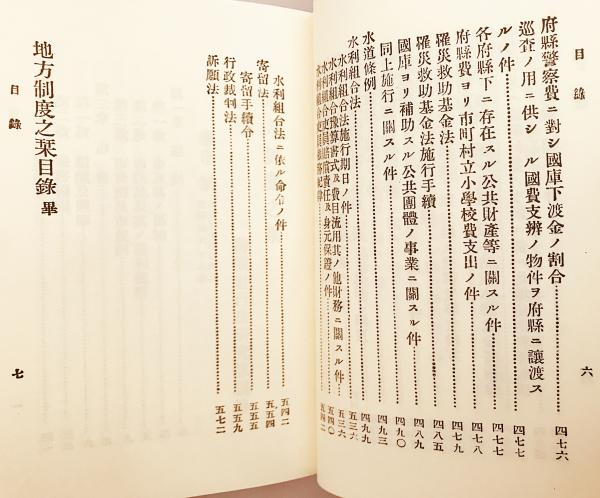 目錄
府縣警察費ニ對シ國庫下渡金ノ割合……四七六
巡査ノ用ニ供シタル國費支辨ノ物件ヲ府縣ニ讓渡ス
ルノ件……四七七
各府縣下ニ存在スル公共財產等ニ關スル件……四七七
府縣費ヨリ市町村立小學校費支出ノ件……四七八
罹災救助基金法……四七九
罹災救助基金法施行手續……四八五
國庫ヨリ補助スル公共團體ノ事業ニ關スル件……四八九
同上施行ニ關スル件……四九〇
水道條例……四九三
水利組合法……四九九
水利組合法施行期日ノ件……五三六
水利組合豫算書式及費目流用其ノ他財務ニ關スル件……五三六
水利組合吏員賠償責任及身元保證ノ件……五四〇
六
水利組合法ニ依ル命令ノ件……五四二
寄留法……五五四
寄留手續令……五五五
行政裁判法……五五九
訴願法……五七二
地方制度之栞目錄 畢
目錄
七